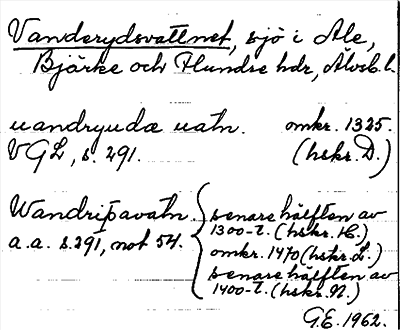 Vanderydsvattnet, sjö i Ale,
Bjärke och Flundre hdr, Älvsb. l.
uandryudæ uatn. omkr. 1325.
VGL, s. 291. (hskr. D.)
Wandripavatn. senare hälften av
1300-t. (hskr. H.)
a.a. s. 291, not 54. omkr. 1470 (hskr. L.)
senare hälften av
1400-t. (hskr. N.)
G.E. 1962.